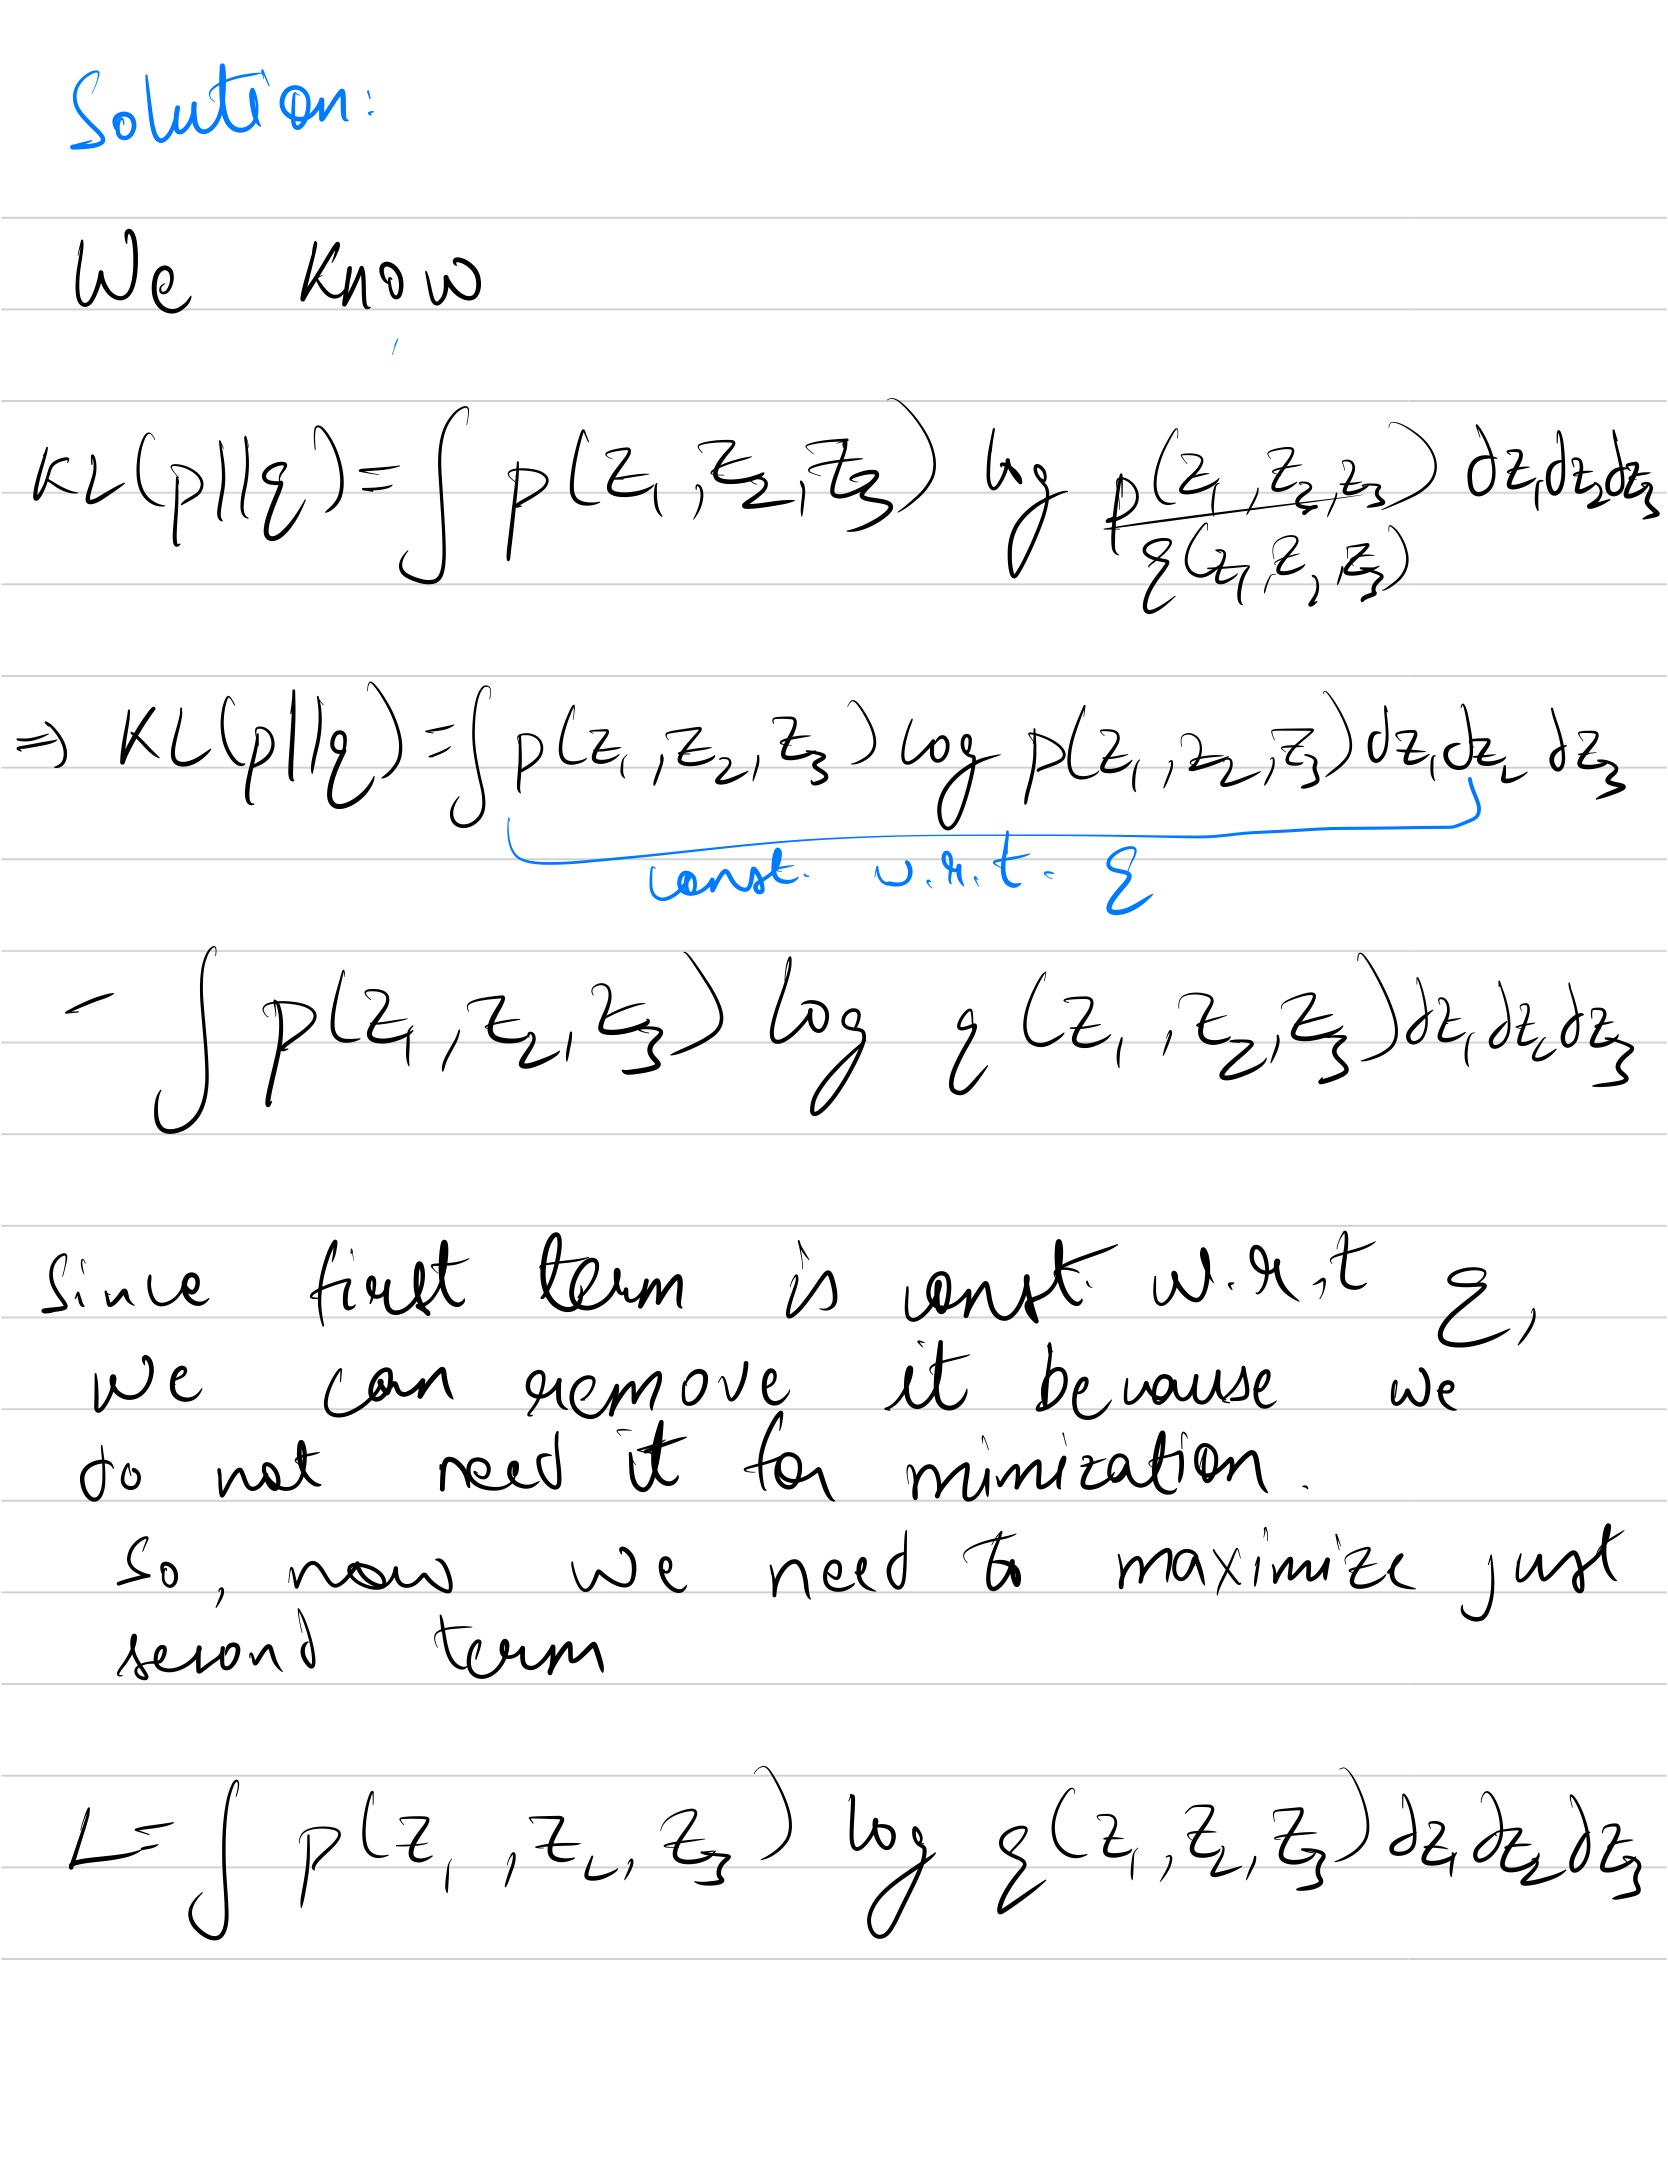 Solution:
We know
KL(p||q)=∫ p(z₁,z₂,z₃) log p(z₁,z₂,z₃)/q(z₁,z₂,z₃) dz₁dz₂dz₃
⇒ KL(p||q)=∫p(z₁,z₂,z₃) log p(z₁,z₂,z₃)dz₁dz₂ dz₃
const. w.r.t. q
- ∫ p(z₁,z₂,z₃) log q(z₁,z₂,z₃)dz₁dz₂dz₃
Since first term is const. w.r.t q,
we can remove it because we
do not need it for minization.
So, now we need to maximize just
second term
L=∫ p(z₁,z₂,z₃) log q(z₁,z₂,z₃)dz₁dz₂dz₃